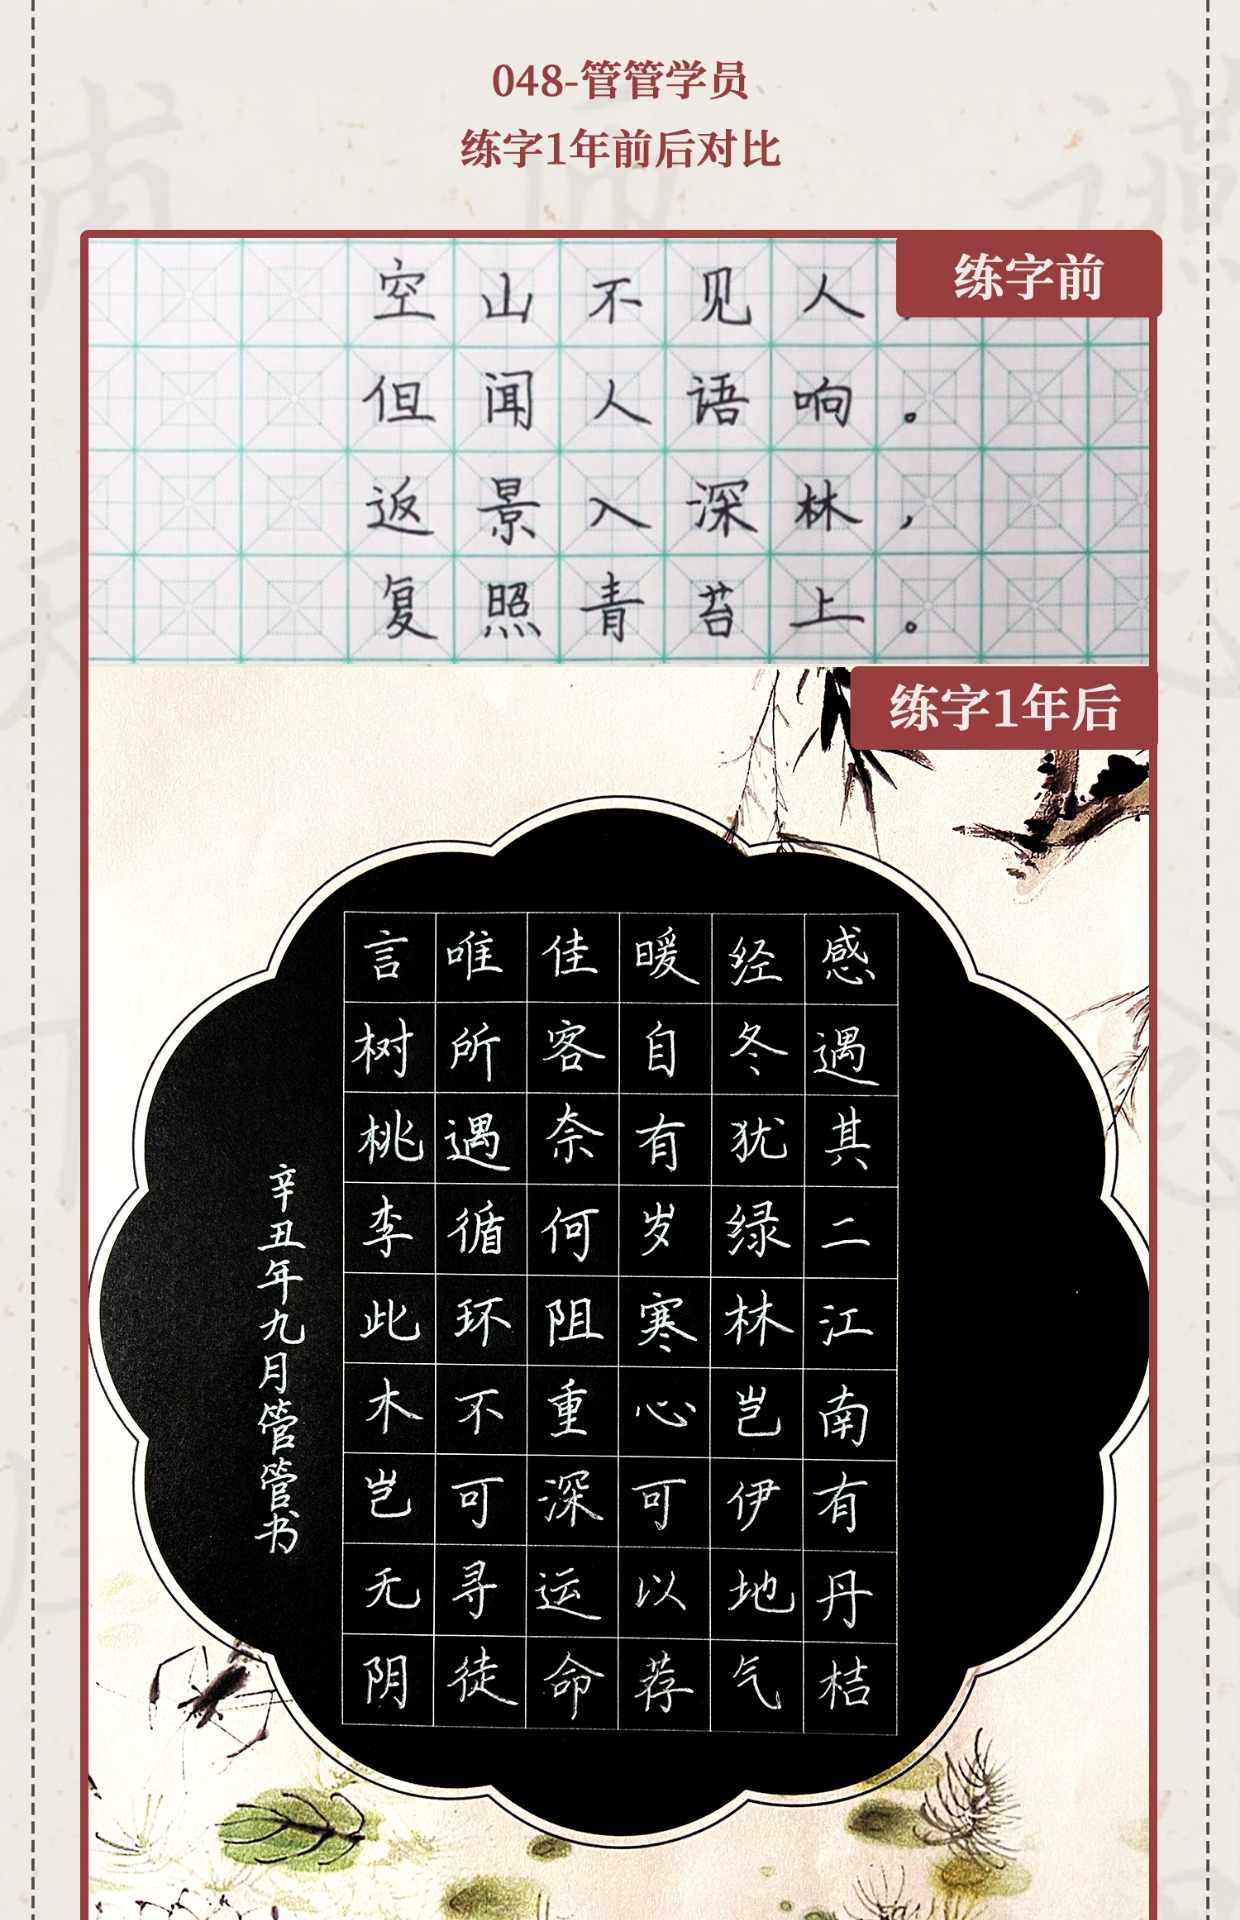 048-管管学员
练字1年前后对比
练字前
空山不见人
但闻人语响。
返景入深林，
复照青苔上。
练字1年后
感遇其二江南有丹桔
经冬犹绿林岂伊地气
暖自有岁寒心可以荐
佳客奈何阻重深运命
唯所遇循环不可寻徒
言树桃李此木岂无阴
辛丑年九月管管书